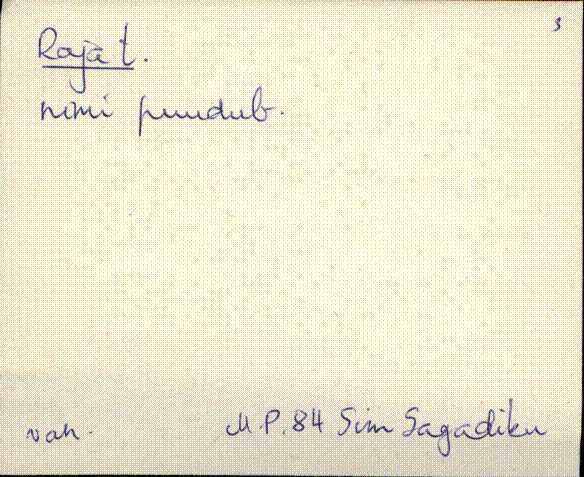 s
Raja t.
nimi puudub.
van.
M.P. 84 Sim Sagadiku